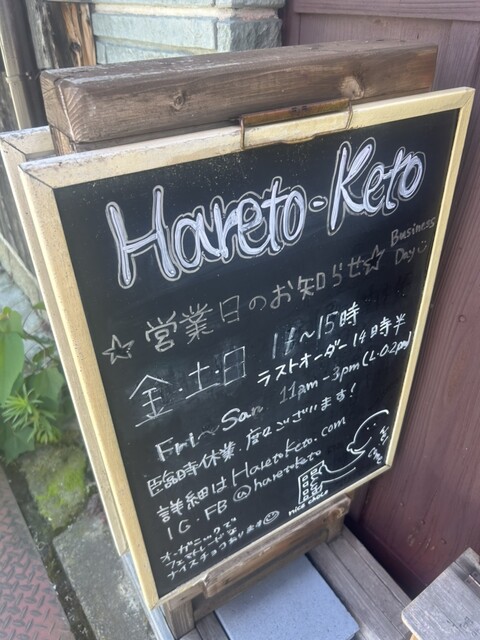 Hareto-Keto
☆ 営業日のお知らせ☆ Business Day
金・土・日 11〜15時
ラストオーダー 14時半
Fri〜Sun 11am-3pm (L.O.2pm)
臨時休業、度々ございます!
詳細は HaretoKeto.com
IG.FB @haretoketo
オーガニックで
フェアトレードな
ナイスチョコあります
nice choco